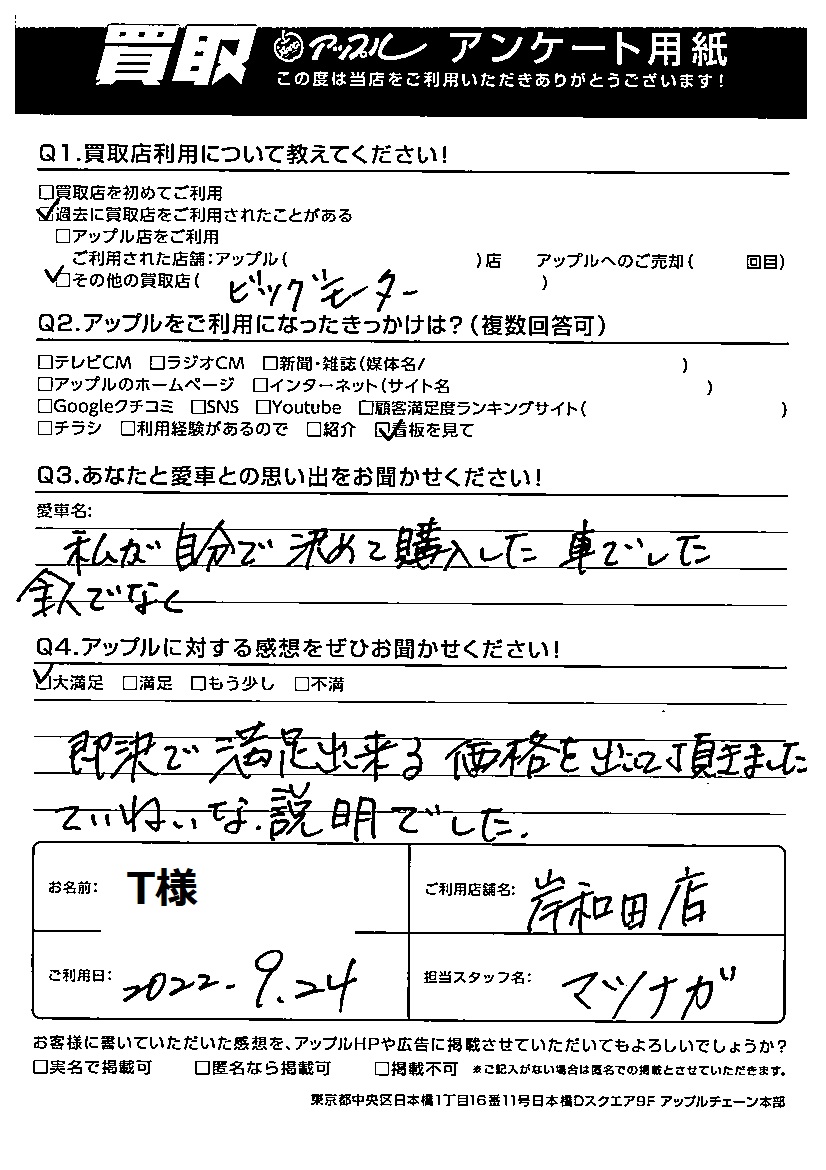 買取 アップル アンケート用紙
この度は当店をご利用いただきありがとうございます!
Q1.買取店利用について教えてください!
□買取店を初めてご利用
☑過去に買取店をご利用されたことがある
□アップル店をご利用
ご利用された店舗:アップル( )店 アップルへのご売却( 回目)
☑その他の買取店( ビッグモーター )
Q2.アップルをご利用になったきっかけは?(複数回答可)
□テレビCM □ラジオCM □新聞・雑誌(媒体名/ )
□アップルのホームページ □インターネット(サイト名 )
□Googleクチコミ □SNS □Youtube □顧客満足度ランキングサイト( )
□チラシ □利用経験があるので □紹介 ☑看板を見て
Q3.あなたと愛車との思い出をお聞かせください!
愛車名:
私が自分で決めて購入した車でした
主人でなく
Q4.アップルに対する感想をぜひお聞かせください!
☑大満足 □満足 □もう少し □不満
即決で満足出来る価格を出して頂きました
ていねいな.説明でした.
お名前: T様 ご利用店舗名: 岸和田店
ご利用日: 2022.9.24 担当スタッフ名: マツナガ
お客様に書いていただいた感想を、アップルHPや広告に掲載させていただいてもよろしいでしょうか?
□実名で掲載可 □匿名なら掲載可 □掲載不可 ※ご記入がない場合は匿名での掲載とさせていただきます。
東京都中央区日本橋1丁目16番11号日本橋Dスクエア9F アップルチェーン本部